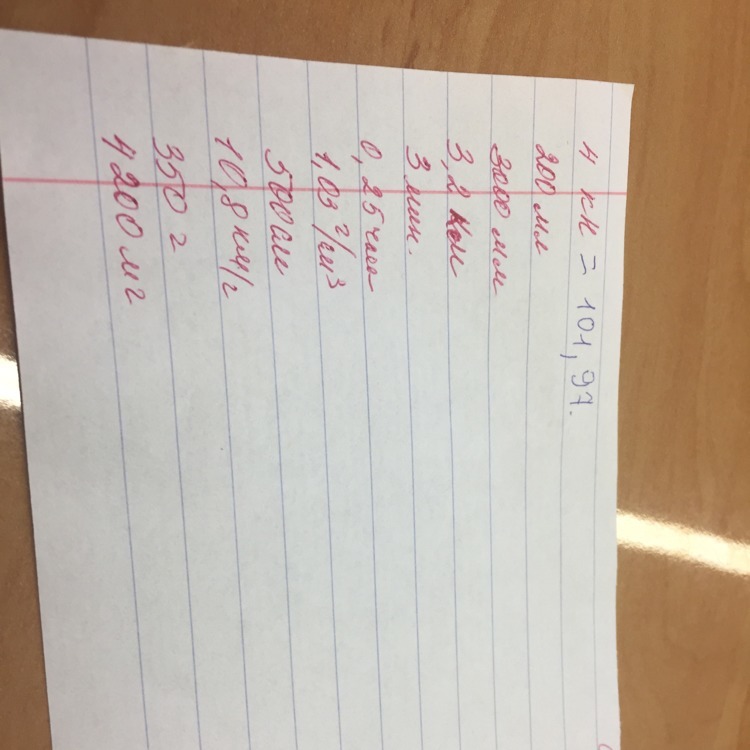 4 кН = 101,97.
200 мл
3000 мм
3,2 км
3 мин.
0,25 часа
1,03 г/см³
500 см
10,8 км/г
350 г
4200 мг